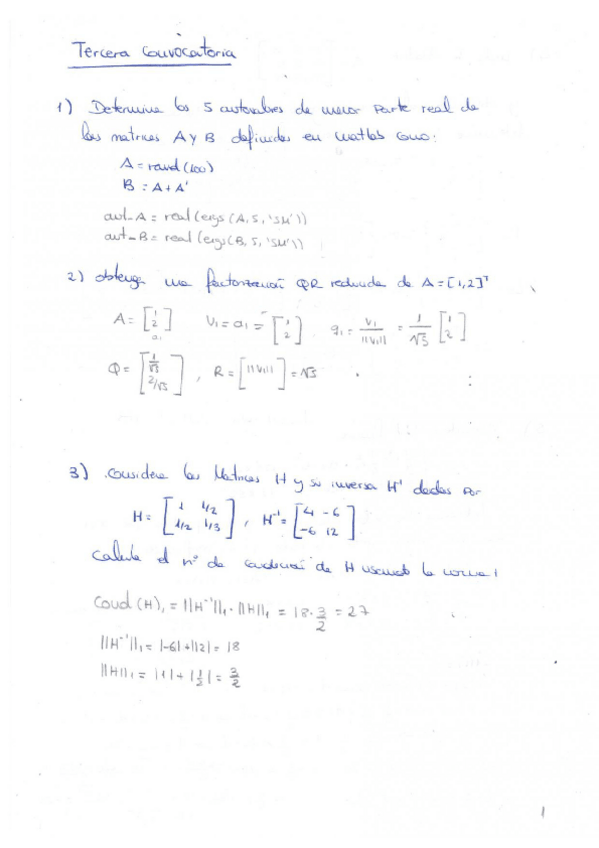 Tercera Convocatoria
1) Determine los 5 autovalores de menor parte real de
las matrices A y B definidas en matlab como:
A = rand (100)
B = A + A'
aut_A = real (eigs (A, 5, 'SM'))
aut_B = real (eigs (B, 5, 'SM'))
2) obtenga una factorización QR reducida de A = [1,2]ᵀ
A = [1 2] a₁ V₁ = a₁ = [1 2] q₁ = V₁/||V₁|| = 1/√5 [1 2]
Q = [1/√5 2/√5] , R = [||V₁||] = √5
3) Considere las Matrices H y su inversa H⁻¹ dadas por
H = [1 1/2 1/2 1/3] , H⁻¹ = [4 -6 -6 12]
Calcule el nº de condición de H usando la norma 1
Cond (H)₁ = ||H⁻¹||₁ · ||H||₁ = 18 · 3/2 = 27
||H⁻¹||₁ = |-6| + |12| = 18
||H||₁ = |1| + |1/2| = 3/2
1